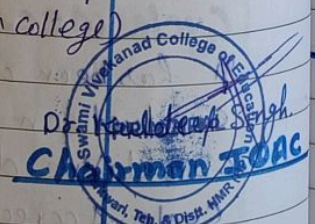 college)
Swami Vivekanad College of Education
Dr. Singh.
Chairman IQAC
Teh. & Distt. HMR